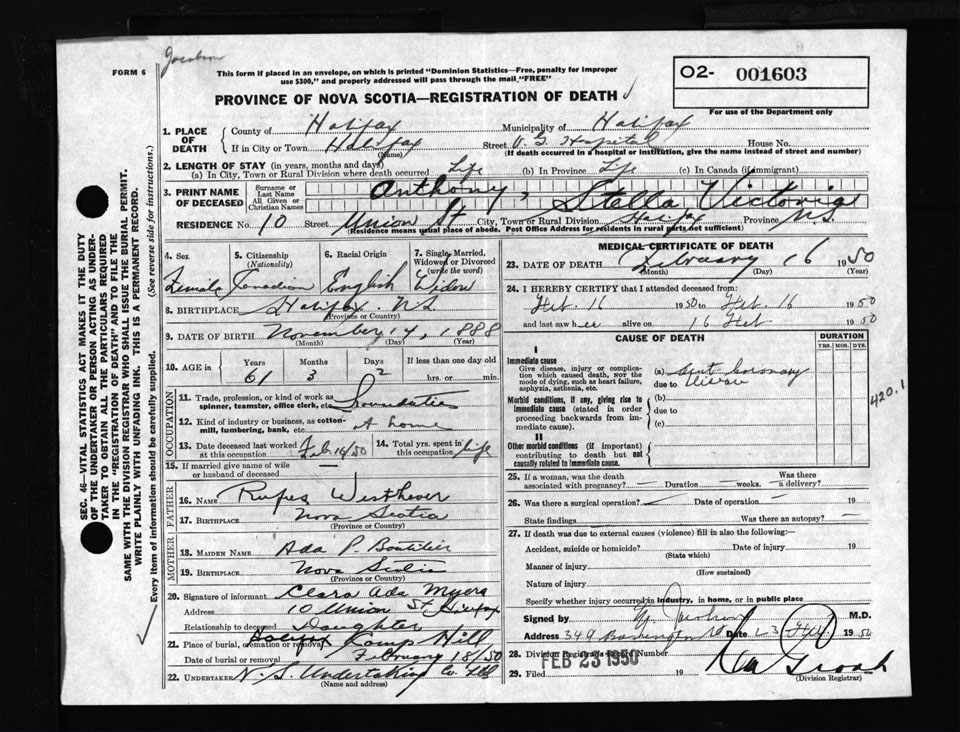 FORM 6
This form if placed in an envelope, on which is printed "Dominion Statistics—Free, penalty for improper
use $300," and properly addressed will pass through the mail, "FREE"
PROVINCE OF NOVA SCOTIA—REGISTRATION OF DEATH
O2- 001603
For use of the Department only
1. PLACE OF DEATH
County of Halifax Municipality of Halifax
If in City or Town Halifax (Name) Street V. G. Hospital House No.
(If death occurred in a hospital or institution, give the name instead of street and number)
2. LENGTH OF STAY (in years, months and days)
(a) In City, Town or Rural Division where death occurred Life (b) In Province Life (c) In Canada (if immigrant)
3. PRINT NAME OF DECEASED
Surname or Last Name Anthony,
All Given or Christian Names Stella Victoria
RESIDENCE No. 10 Street Union St City, Town or Rural Division Halifax Province N.S.
(Residence means usual place of abode. Post Office Address for residents in rural parts not sufficient)
4. Sex
Female
5. Citizenship (Nationality)
Canadian
6. Racial Origin
English
7. Single, Married, Widowed or Divorced (write the word)
Widow
8. BIRTHPLACE Halifax N.S.
(Province or Country)
9. DATE OF BIRTH November 14, 1888
(Month) (Day) (Year)
10. AGE in Years Months Days If less than one day old
61 3 2 hrs. or min.
OCCUPATION
11. Trade, profession, or kind of work as
spinner, teamster, office clerk, etc.
12. Kind of industry or business, as cotton-
mill, lumbering, bank, etc. At home
13. Date deceased last worked
at this occupation Feb. 16/50
14. Total yrs. spent in
this occupation life
15. If married give name of wife
or husband of deceased —
FATHER
16. NAME Rufes Westhaver
17. BIRTHPLACE Nova Scotia
(Province or Country)
MOTHER
18. MAIDEN NAME Ada P. Boutilier
19. BIRTHPLACE Nova Scotia
(Province or Country)
20. Signature of informant Clara Ada Myers
Address 10 Union St, Halifax
Relationship to deceased Daughter
21. Place of burial, cremation or removal Halifax Camp Hill
Date of burial or removal February 18/50
22. UNDERTAKER N. S. Undertaking Co.
(Name and address)
MEDICAL CERTIFICATE OF DEATH
23. DATE OF DEATH February 16 1950
(Month) (Day) (Year)
24. I HEREBY CERTIFY that I attended deceased from:
Feb. 16 1950 to Feb. 16 1950
and last saw her alive on 16 Feb 1950
CAUSE OF DEATH
DURATION
YRS. MOS. DYS.
I
Immediate cause
Give disease, injury or complica-
tion which caused death, NOT the
mode of dying, such as heart failure,
asphyxia, asthenia, etc.
(a) coronary
due to
Morbid conditions, if any, giving rise to
immediate cause (stated in order
proceeding backwards from im-
mediate cause).
(b)
due to
(c)
II
Other morbid conditions (if important)
contributing to death but not
causally related to immediate cause.
420.1
25. If a woman, was the death
associated with pregnancy? — Duration — weeks. Was there a delivery? —
26. Was there a surgical operation? — Date of operation — 19
State findings — Was there an autopsy? —
27. If death was due to external causes (violence) fill in also the following:—
Accident, suicide or homicide? Date of injury 19
(State which)
Manner of injury
(How sustained)
Nature of injury
Specify whether injury occurred in industry, in home, or in public place
Signed by M.D.
Address 349 Date 23 Feb 1950
28. Division Registrar's Record Number
FEB 23 1950
29. Filed 19
(Division Registrar)
SEC. 46—VITAL STATISTICS ACT MAKES IT THE DUTY
OF THE UNDERTAKER OR PERSON ACTING AS UNDER-
TAKER TO OBTAIN ALL THE PARTICULARS REQUIRED
IN THE "REGISTRATION OF DEATH" AND TO FILE THE
SAME WITH THE DIVISION REGISTRAR WHO SHALL ISSUE THE BURIAL PERMIT.
WRITE PLAINLY WITH UNFADING INK. THIS IS A PERMANENT RECORD.
Every item of information should be carefully supplied. (See reverse side for instructions.)